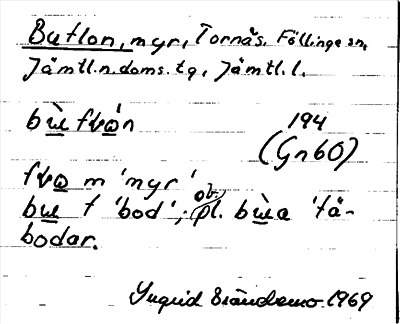 Buflon, myr, Tornäs, Föllinge sn,
Jämtl.n.doms.tg, Jämtl.l.
bù̲ fló̲n
194
(Gn60)
flo̲ m 'myr'
bu̲ f 'bod'; ob. pl. bù̲a 'fä-
bodar.
Yngrid 1969